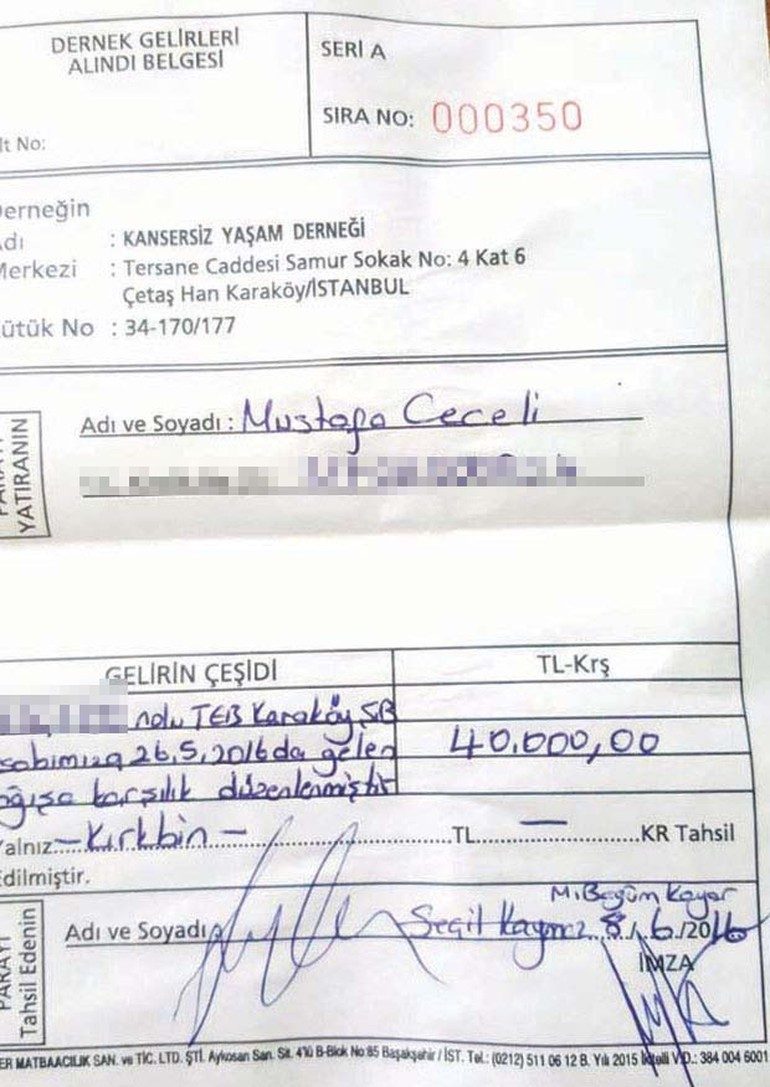 DERNEK GELİRLERİ
ALINDI BELGESİ
SERİ A
SIRA NO: 000350
lt No:
erneğin
dı : KANSERSİZ YAŞAM DERNEĞİ
Merkezi : Tersane Caddesi Samur Sokak No: 4 Kat 6
Çetaş Han Karaköy/İSTANBUL
ütük No : 34-170/177
PARAYI
YATIRANIN
Adı ve Soyadı : Mustafa Ceceli
GELİRİN ÇEŞİDİ
TL-Krş
nolu TEB Karaköy ŞB
sabımıza 26.5.2016 da gelen 40.000,00
ağışa karşılık düzenlenmiştir
Yalnız....-Kırkbin-....TL....—....KR Tahsil
Edilmiştir.
PARAYI
Tahsil Edenin
M. Begüm Kayar
Adı ve Soyadı 8/6/2016
İMZA
ER MATBAACILIK SAN. ve TİC. LTD. ŞTİ. Aykosan San. Sit. 4'lü B-Blok No:85 Başakşehir / İST. Tel.: (0212) 511 06 12 B. Yılı 2015 İkitelli V.D.: 384 004 6001